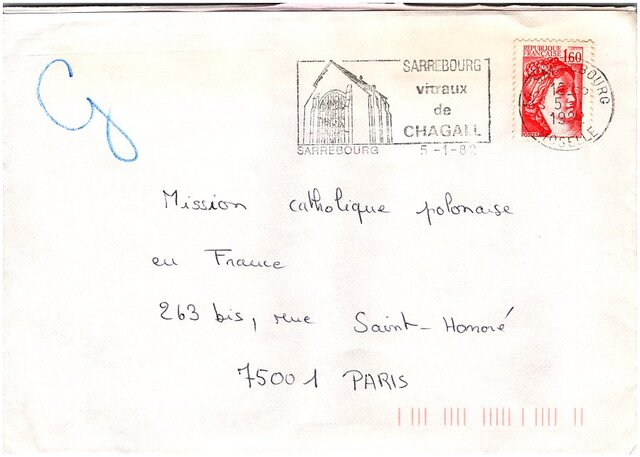 SARREBOURG
vitraux
de
CHAGALL
SARREBOURG
REPUBLIQUE
FRANÇAISE 1,60
Mission catholique polonaise
en France
263 bis, rue Saint-Honoré
75001 PARIS